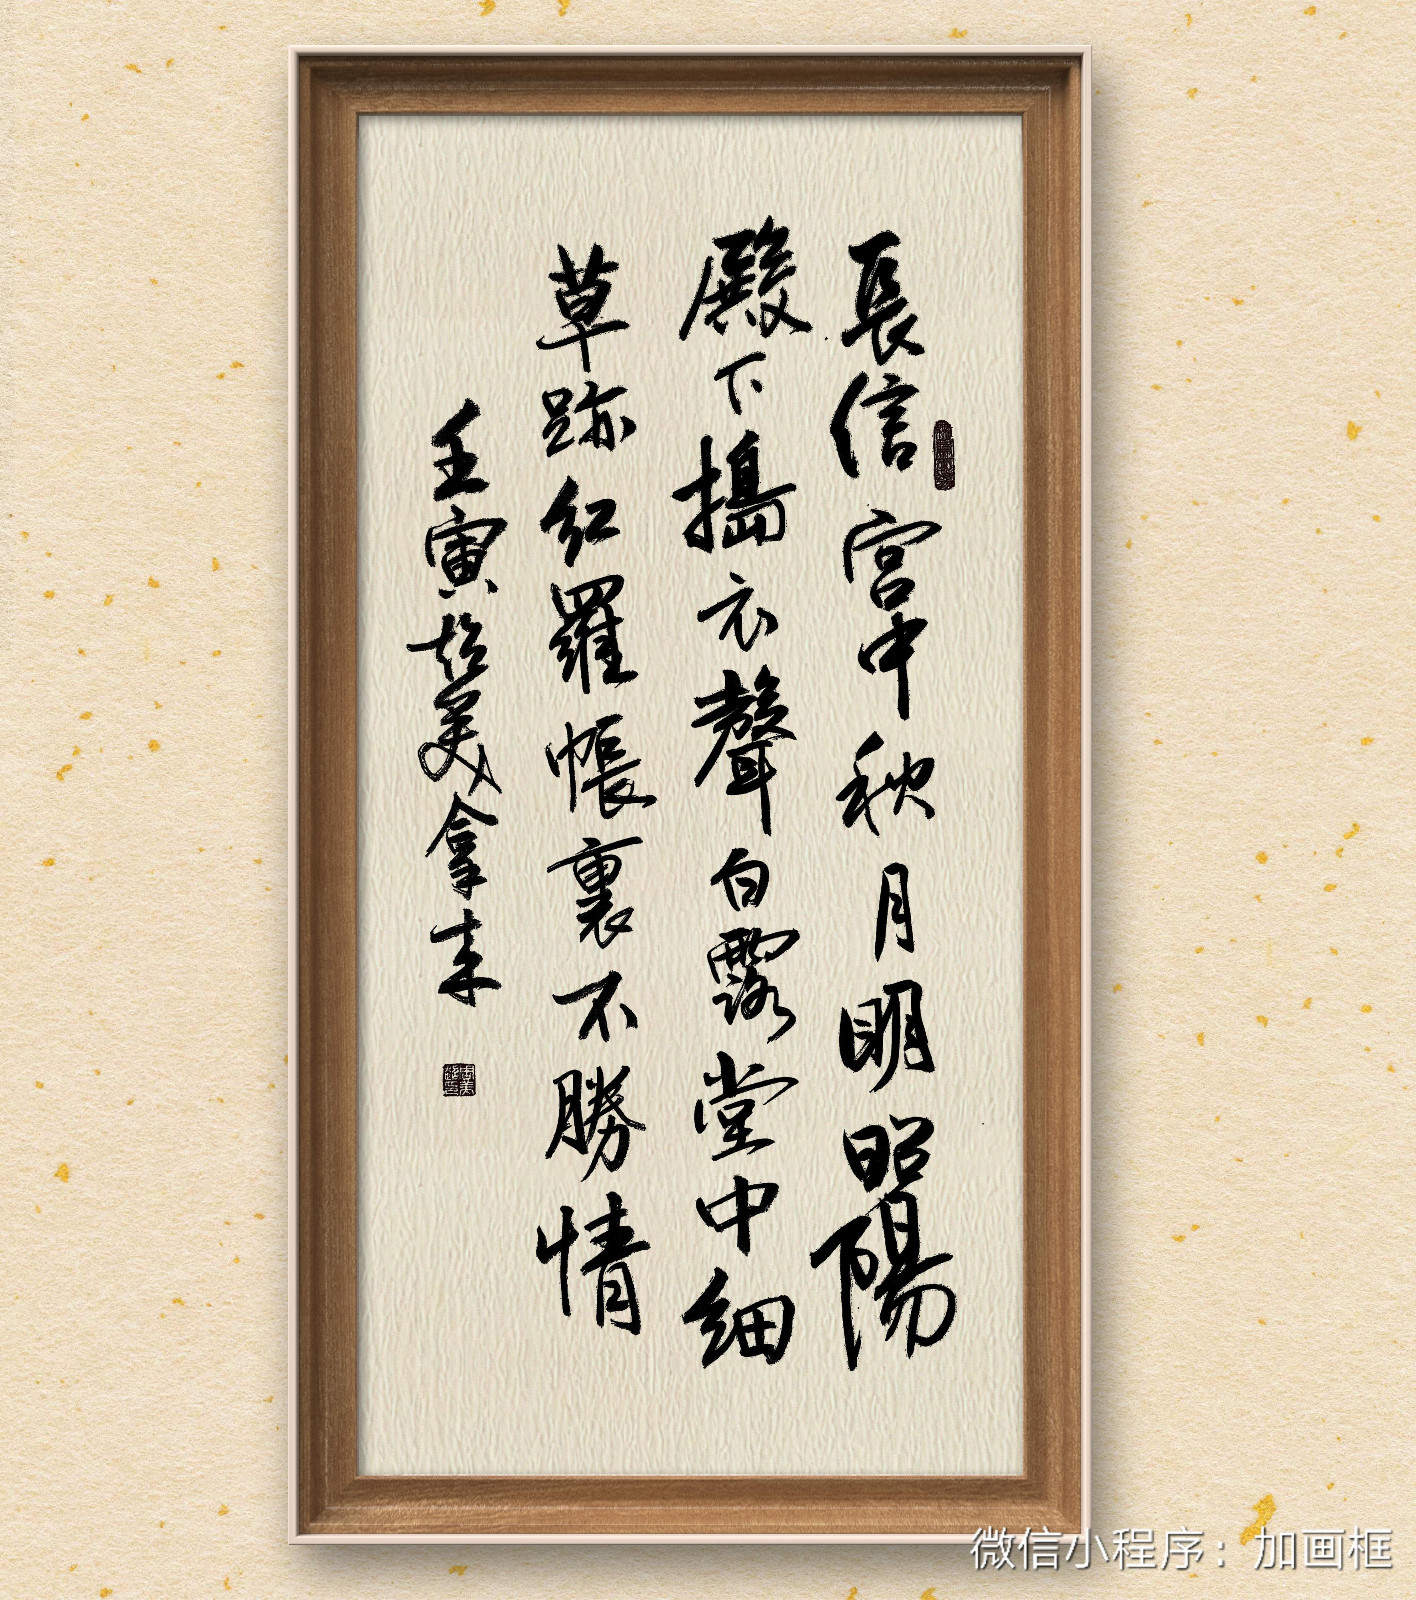 長信宮中秋月明昭陽
殿下搗衣聲白露堂中細
草跡紅羅帳裏不勝情
壬寅 美拿来
微信小程序：加画框